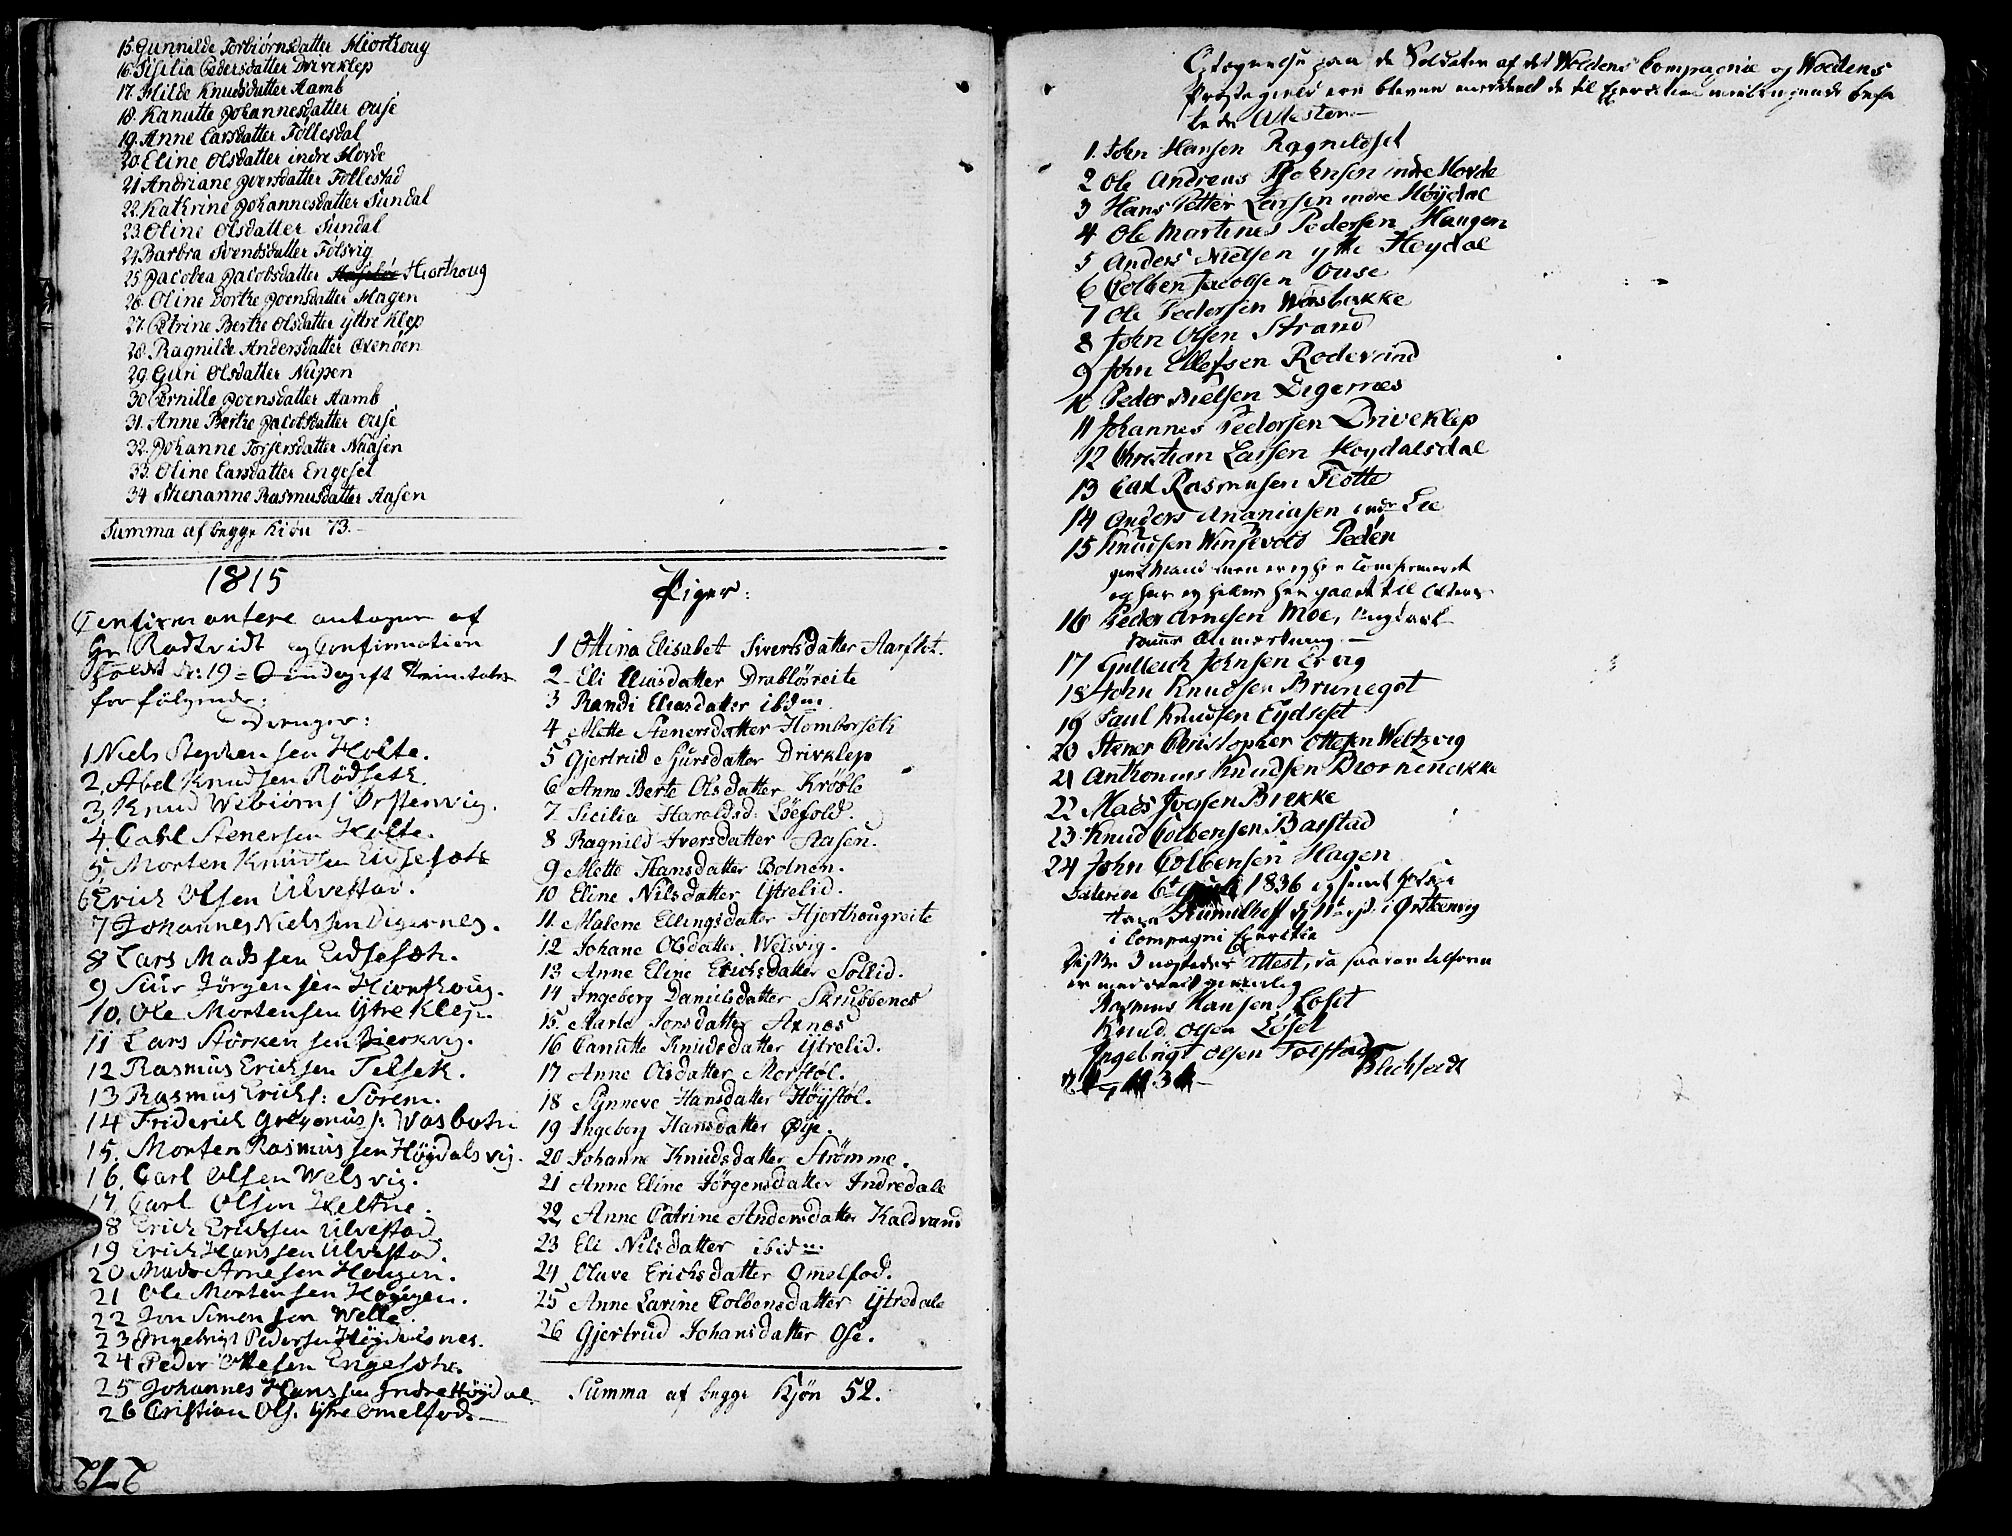 15. Gunnilde Torbiørnsdatter Hiorthoug
16. Sisilia Pedersdatter Driveklep
17. Milde Knudsdatter Aamb
18. Kanutte Johannesdatter Ouse
19. Anne Larsdatter Follesdal
20. Eline Olsdatter indre Hovde
21 Andriane Iversdatter Follestad
22. Kathrine Johannesdatter Sundal
23. Oline Olsdatter Sundal
24 Barbra Svendsdatter Folsvig
25 Jacobra Jacobsdatter Hiorthoug
26. Oline Dorthe Joensdatter Hagen
27. Petrine Berthe Olsdatter yttre Klep
28. Ragnilde Andersdatter Oxenøen
29. Guri Olsdatter Nupen
30 Pernille Joensdatter Aamb
31. Anne Berthe Jacobsdatter Ouse
32. Johanne Torgersdatter Naasen
33. Oline Larsdatter Engeset
34 Stienanne Rasmusdatter Aasen
Summa af begge Kiøn 73.
1815
Confirmantere antagne af
Hr Rodtvidt og Confirmation
holdt Dn. 19 =
for følgende:
Drenger:
1 Niels Stephensen Holte.
2. Abel Knudsen Rödseth
3. Knud Webiørns Ørstenvig.
4. Carl Stenersen Holte.
5 Morten Knudsen Eidseseth
6 Erich Olsen Ulvestad.
7 Johannes Nielssen Digernes.
8 Lars Madssen Eidseseth.
9 Siur Jörgensen Hiorthoug.
10. Ole Mortensen Ytre Klep.
11 Lars Störkersen Bierkvig.
12 Rasmus Ericksen Telseth.
13 Rasmus Erichs: Sörem.
14 Friderich Gregorius: Vasbotn
15. Morten Rasmussen Höydalsvig.
16. Carl Olsen Welsvig.
17 Carl Olsen Heltne.
18 Erich Erichsen Ulvestad
19 Erich Hanssen Ulvestad.
20 Mads Arnesen Hougen.
21 Ole Mortensen Hougen.
22 Jon Simonsen Welle.
23 Ingebrigt Pedersen Höydalsnes.
24 Peder Ottesen Engeseth.
25 Johannes Hanssen Indre Höydal
26 Cristian Ols. Ytre Omelfod.
272
Piger:
1 Ottina Elisabet Sivertsdatter Aarflot.
2 Eli Eliasdatter Drablösreite
3 Randi Eliasdatter ibidm
4 Mette Stenersdatter Homborseth
5 Gjertrud Sjursdatter Drivklep
6 Anne Berte Olsdatter Kröble
7 Sicilia Haraldsd: Löefold.
8 Ragnild Iversdatter Aasen.
9 Mette Hansdatter Botnen.
10 Eline Nilsdatter Ytrelid.
11 Malene Ellingsdatter Hjorthougreite
12 Johane Olsdatter Welsvig.
13 Anne Eline Erichsdatter Sollid.
14 Ingeborg Danielsdatter Skrubbenes
15 Marte Jonsdatter Axnes
16 Canutte Knudsdatter Ytrelid.
17 Anne Olsdatter Morstöl.
18 Synneve Hansdatter Höystöl.
19 Ingeborg Hansdatter Øye.
20 Johanne Knudsdatter Strömme.
21 Anne Eline Jörgensdatter Indredale
22 Anne Catrine Andersdatter Kaldvand
23 Eli Nilsdatter ibidm
24 Olave Erichsdatter Omelfod.
25 Anne Larine Colbensdatter Ytredale
26 Gjertrud Johansdatter Ose.
Summa af begge Kjön 52.
paa de Soldater af det Woldens Compagnie og Woldens
Præstegield ere blevne de til Exercitien
Attester
1. John Hansen Ragnildset
2 Ole Andreas Johnsen indre Hovde
3 Hans Petter Larsen indre Høydal
4 Ole Martines Pedersen Haugen
5 Anders Nielsen ytre Høydal
6 Colben Jacobsen Ouse
7 Ole Pedersen Wansbakke
8 John Olsen Strand
9 John Ellefsen Rodevand
10 Peder Nielsen Digernes
11 Johannes Pedersen Driveklep
12 Christian Larsen Høydalsdal
13 Carl Rasmusen Flotte
14 Anders Ananiasen indr Lie
15 Knudsen Winsevold Peder
gift Mand men er ej her Confirmeret
og har ej heller her gaaet til Alters
16 Peder Arnesen Moe, ligesaa
samme Anmerkning
17 Gulleich Johnsen Ervig
18 John Knudsen Brunegot
19 Paul Knudsen Eydset
20 Stener Christopher Ottesen Weltzvig
21 Anthonius Knudsen Biørnenakke
22 Mads Iversen Brekke
23 Knud Colbensen Barstad
24 John Colbensen Hagen
1836
11te i Ørstenvig
i Compagni Exercitie
Attest, da
Rasmus Hansen Løset
Knud Olsen Løset
Ingebrigt Olsen Folstad